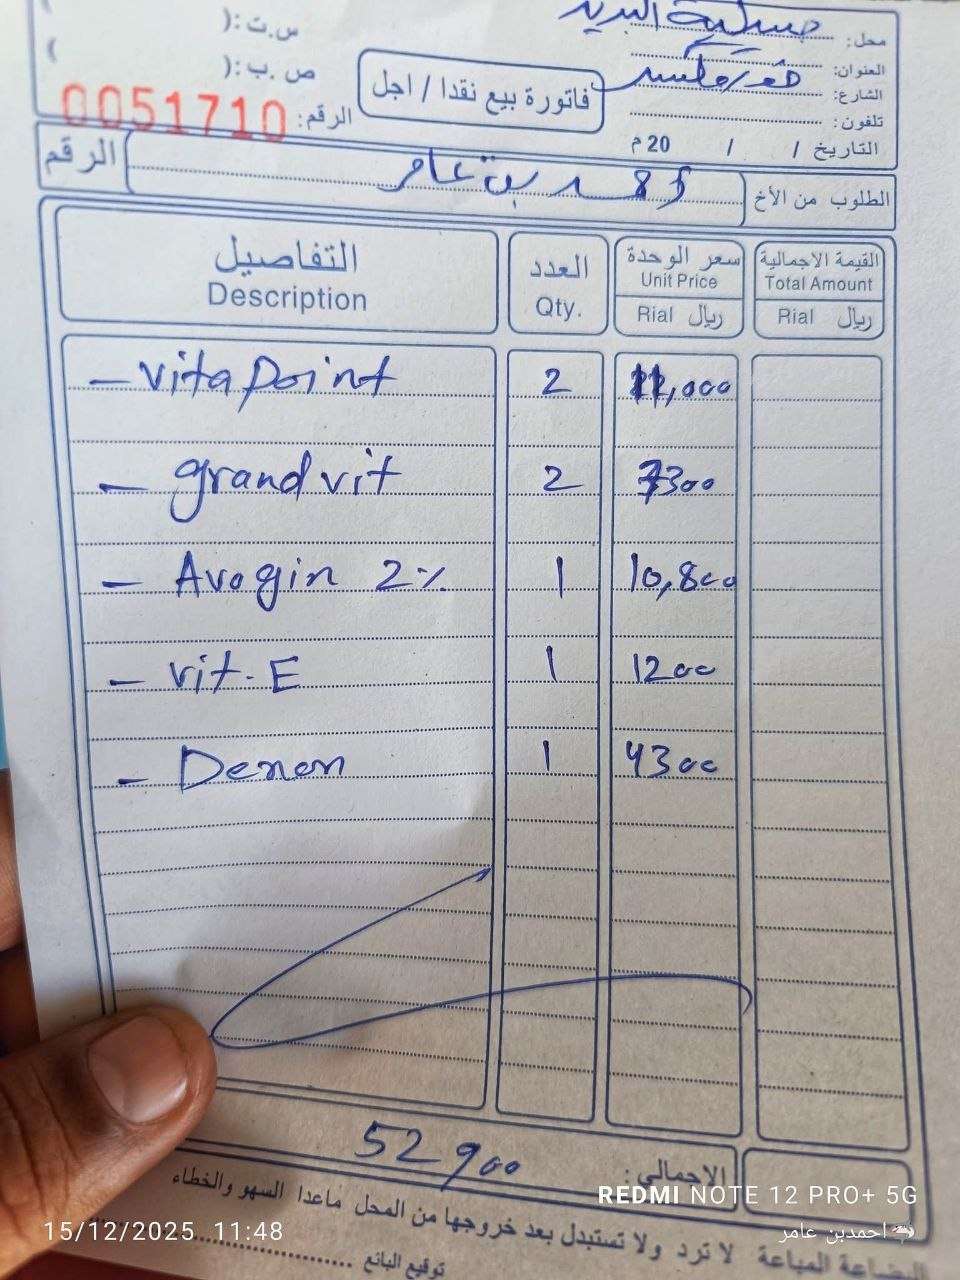 محل:
س.ت:( )
العنوان:
الشارع:
ص.ب:( )
فاتورة بيع نقدا / اجل
تلفون:
الرقم: 0051710
التاريخ / / 20 م
الطلوب من الأخ احمد بن عامر الرقم
التفاصيل العدد سعر الوحدة القيمة الاجمالية
Description Qty. Unit Price Total Amount
Rial ريال Rial ريال
- Vita Point 2 11,000
- grand vit 2 7300
- Avogin 2% 1 10,800
- vit. E 1 1200
- Denen 1 4300
الإجمالي: 52900
البضاعة المباعة لا ترد ولا تستبدل بعد خروجها من المحل ماعدا السهو والخطاء
توقيع البائع
REDMI NOTE 12 PRO+ 5G
15/12/2025 11:48
احمدبن عامر